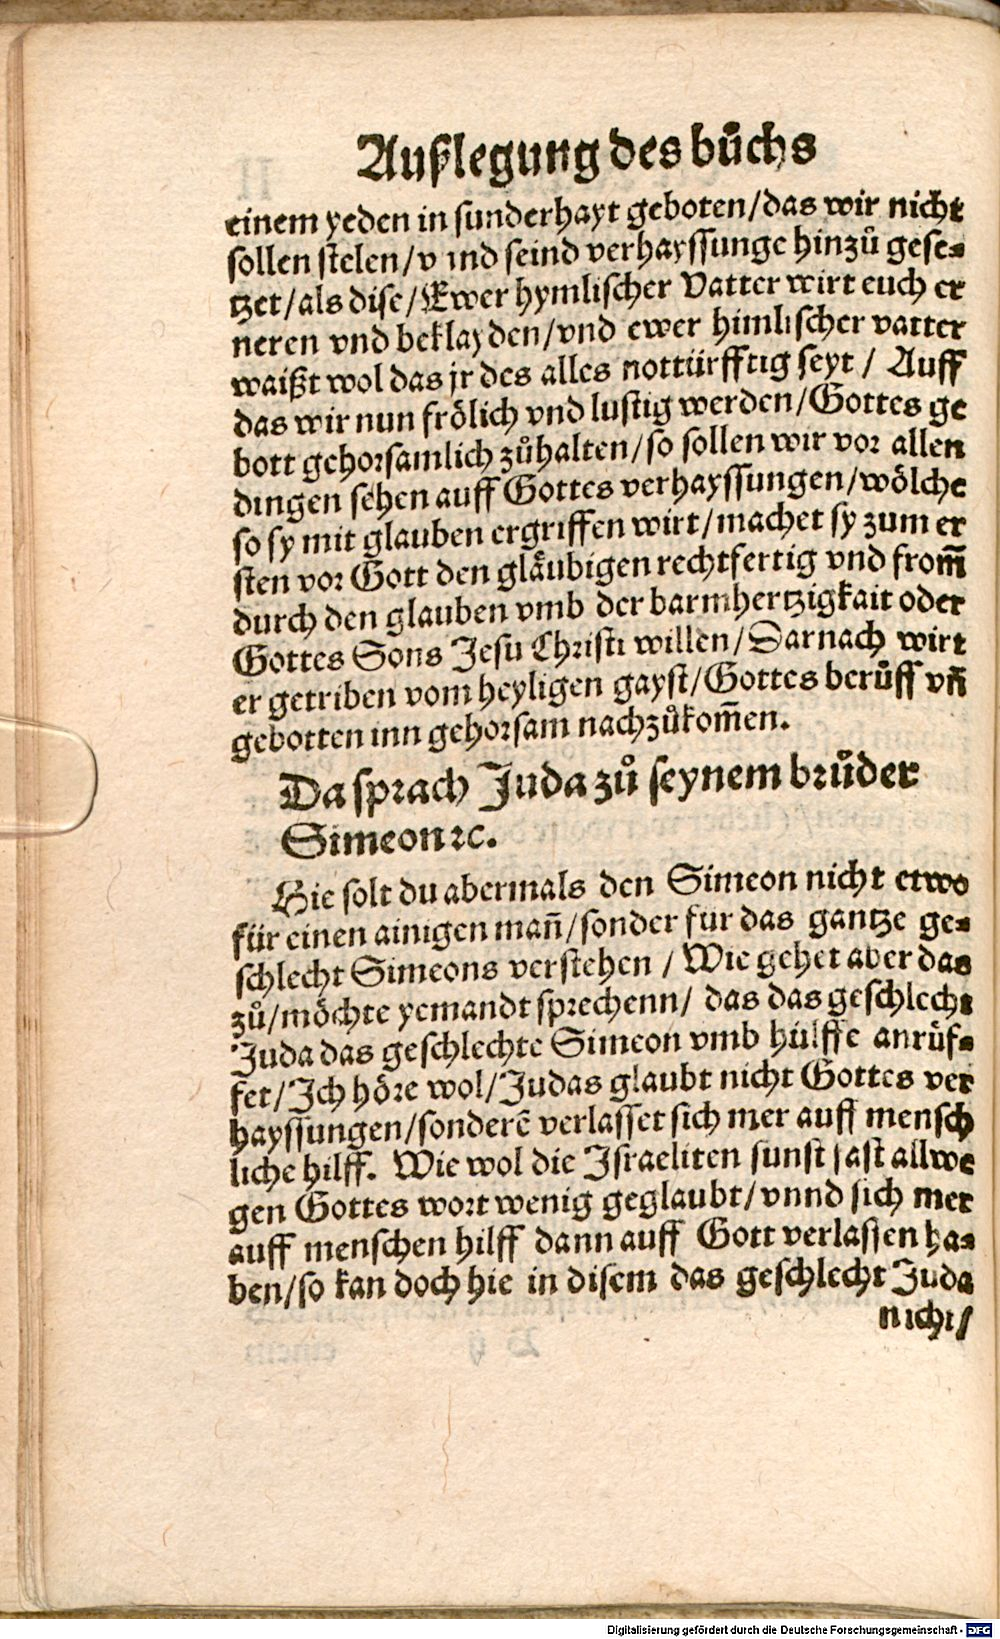 Außlegung des bůchs
einem yeden in sunderhayt geboten/das wir nicht
sollen stelen/vnnd seind verhayssunge hinzů gese⸗
tzet/als dise/Ewer hymlischer Vatter wirt euch er
neren vnd beklayden/vnd ewer himlischer vatter
waißt wol das jr des alles nottürfftig seyt / Auff
das wir nun frölich vnd lustig werden/Gottes ge
bott gehorsamlich zůhalten/so sollen wir vor allen
dingen sehen auff Gottes verhayssungen/wölche
so sy mit glauben ergriffen wirt/machet sy zum er
sten vor Gott den gläubigen rechtfertig vnd from̃
durch den glauben vmb der barmhertzigkait oder
Gottes Sons Jesu Christi willen/Darnach wirt
er getriben vom heyligen gayst/Gottes berůff vñ
gebotten inn gehorsam nachzůkom̃en.
Da sprach Juda zů seynem brůder
Simeon ꝛc.
Hie solt du abermals den Simeon nicht etwo
für einen ainigen mañ/sonder für das gantze ge⸗
schlecht Simeons verstehen / Wie gehet aber das
zů/möchte yemandt sprechenn/ das das geschlecht
Juda das geschlechte Simeon vmb hülffe anrůf⸗
fet/Ich höre wol/Judas glaubt nicht Gottes ver
hayssungen/sonderẽ verlasset sich mer auff mensch
liche hilff. Wie wol die Israeliten sunst fast allwe
gen Gottes wort wenig geglaubt/vnnd sich mer
auff menschen hilff dann auff Gott verlassen ha⸗
ben/so kan doch hie in disem das geschlecht Juda
nicht/
Digitalisierung gefördert durch die Deutsche Forschungsgemeinschaft - DFG